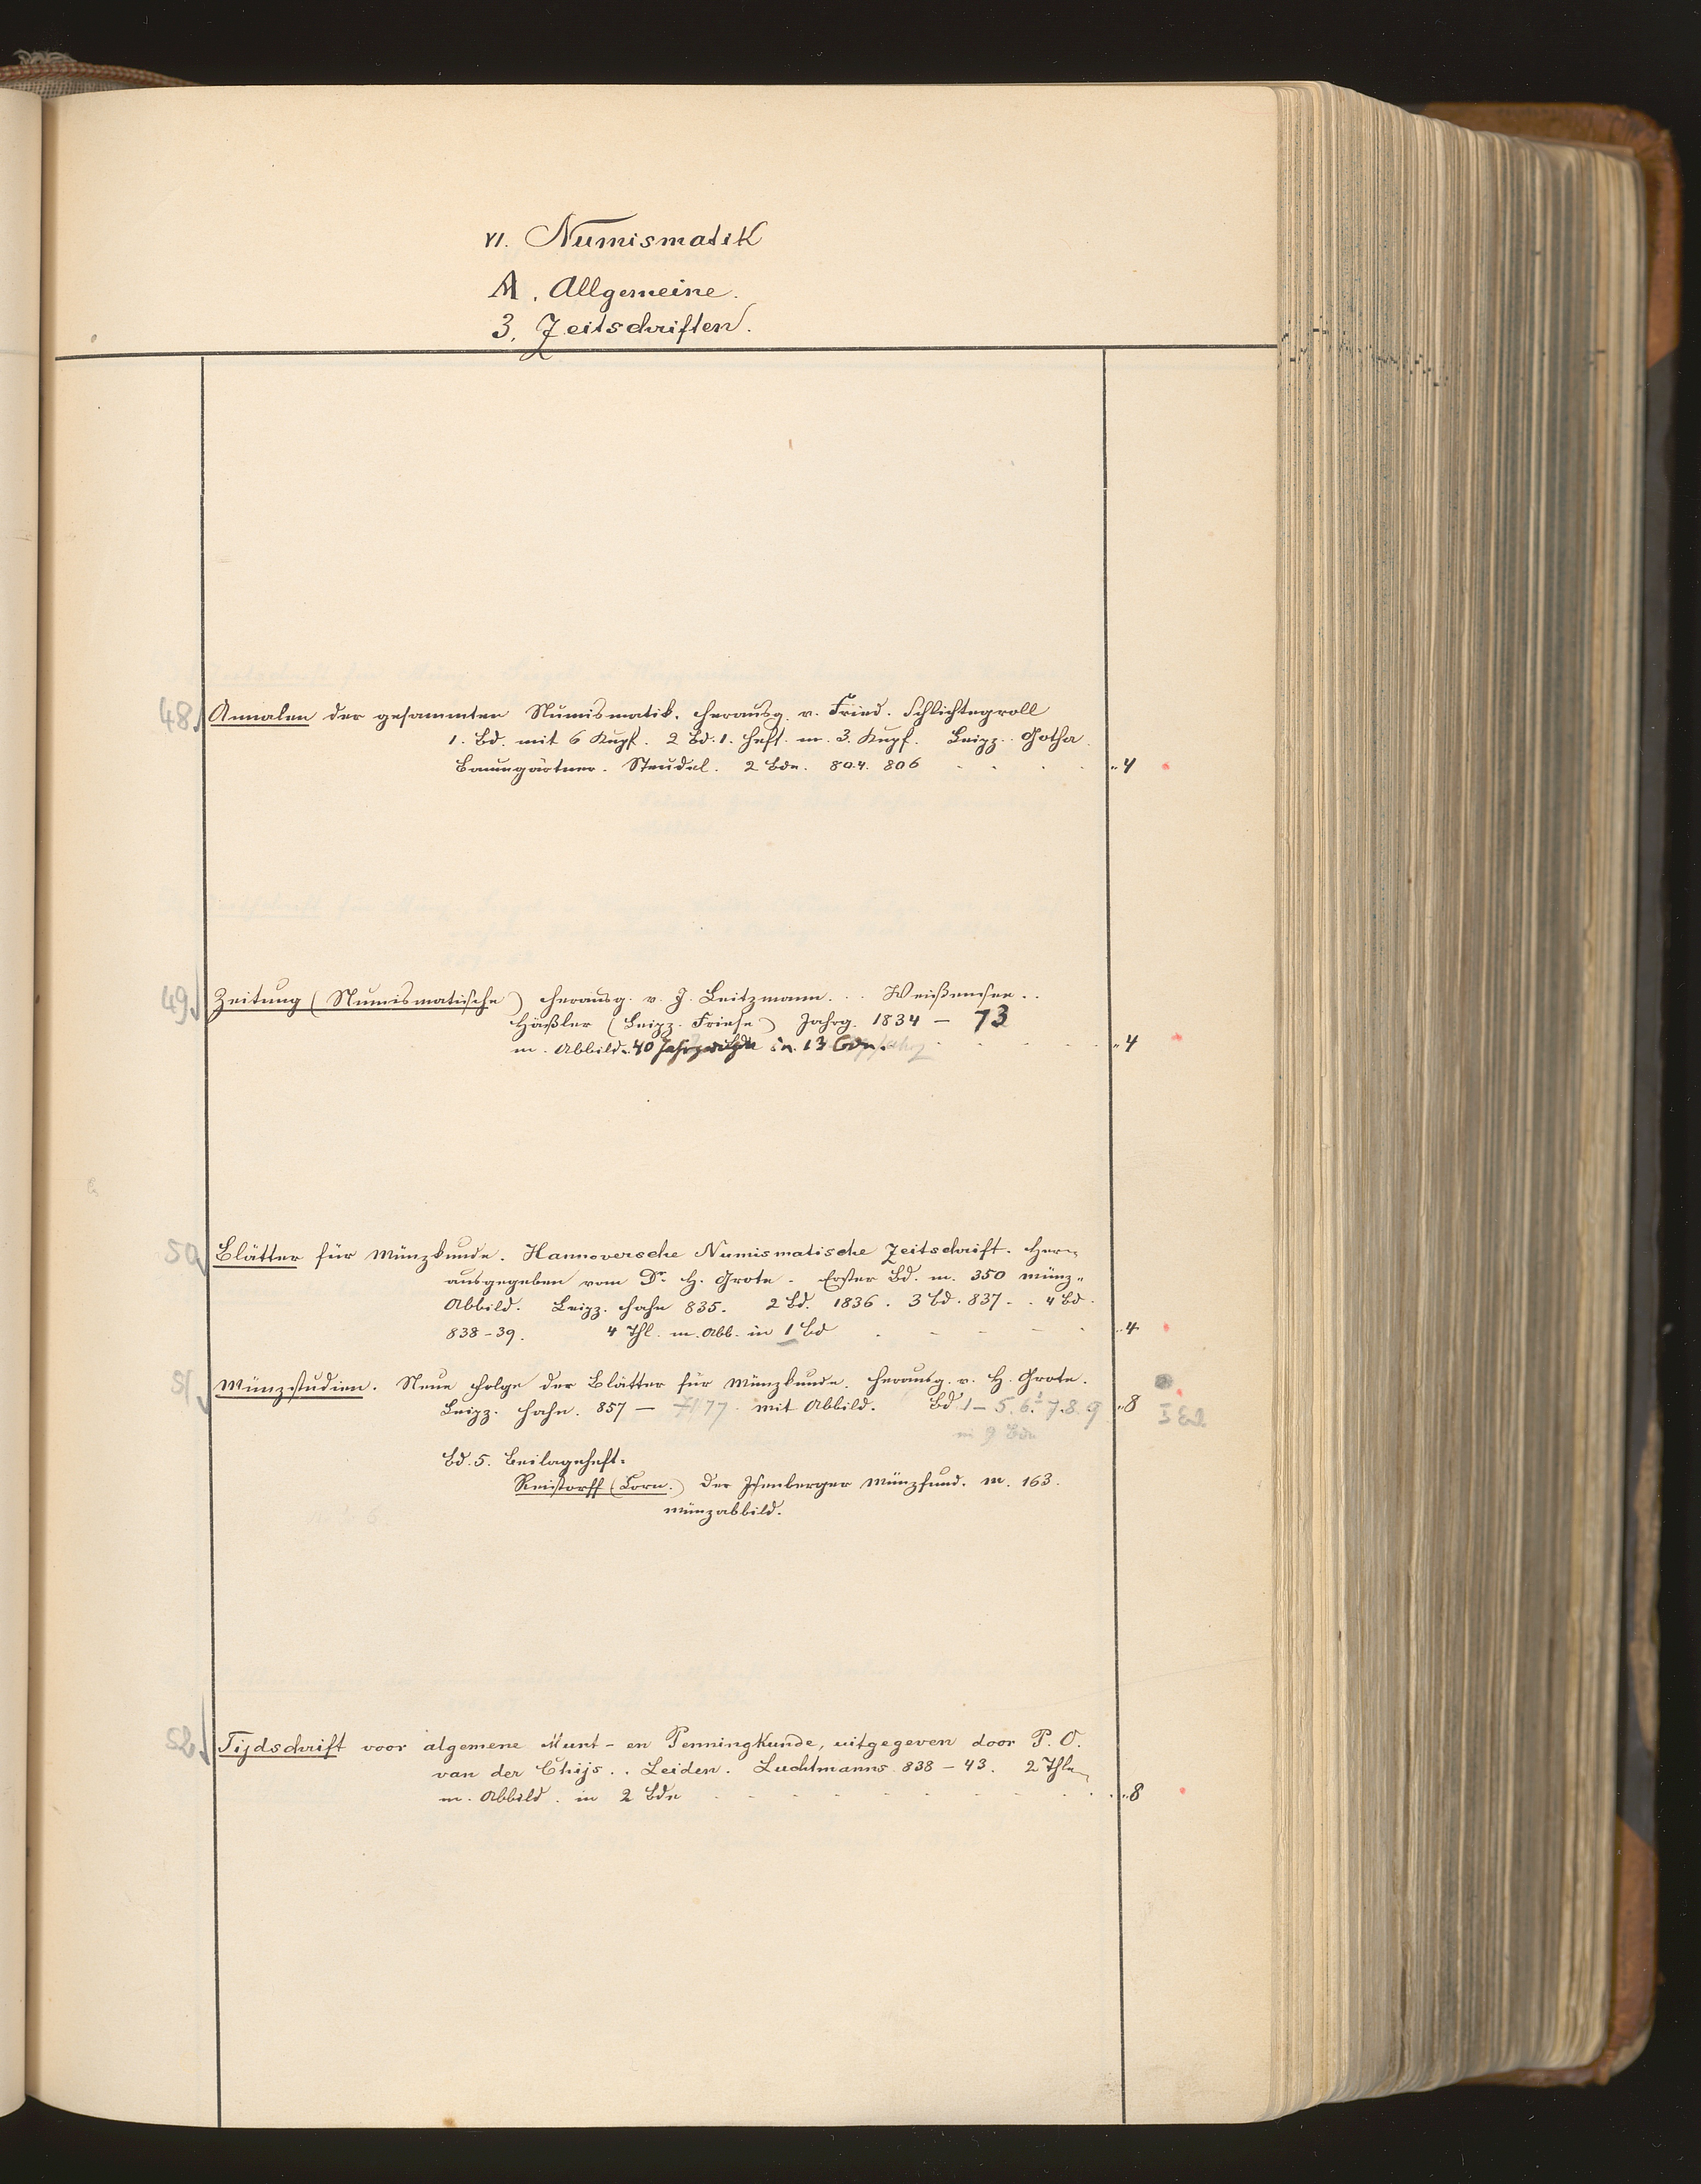 VI. Numismatik
A. Allgemeine.
3. Zeitschriften.
48. Annalen der gesammten Numismatik. herausg. v. Fried. Schlichtegroll
1. Bd. mit 6 Kupf. 2 Bd. 1. Heft. m. 3. Kupf. Leipz. Gotha.
Baumgärtner. Steudel. 2 Bde. 804. 806 „4
49. Zeitung (Numismatische) herausg. v. J. Leitzmann... Weißensee..
Häßler (Leipz. Friese) Jahrg. 1834 – 73
m. Abbild. 40 Jahrg in 13 Bdn. „4
50. Blätter für Münzkunde. Hannoversche Numismatische Zeitschrift. Her=
ausgegeben vom Dr. H. Grote. Erster Bd. m. 350 Münz=
Abbild. Leipz. Hahn 835. 2 Bd. 1836. 3 Bd. 837.. 4 Bd.
838-39. 4 Thl. m. Abb. in 1 Bd „4
51. Münzstudien. Neue Folge der Blätter für Münzkunde. herausg. v. H. Grote.
Leipz. Hahn. 857 – 77. mit Abbild. Bd 1–5. 6. 7. 8. 9 „8
in 9 Bdn
Bd. 5. Beilageheft.
Reistorff (Corn.) Der Isenberger Münzfund. m. 163.
Münzabbild.
52. Tijdschrift voor algemene Munt- en Penningkunde, uitgegeven door P. O.
van der Chijs.. Leiden. Luchtmanns 838 – 43. 2 Thle
m. Abbild. in 2 Bde „8